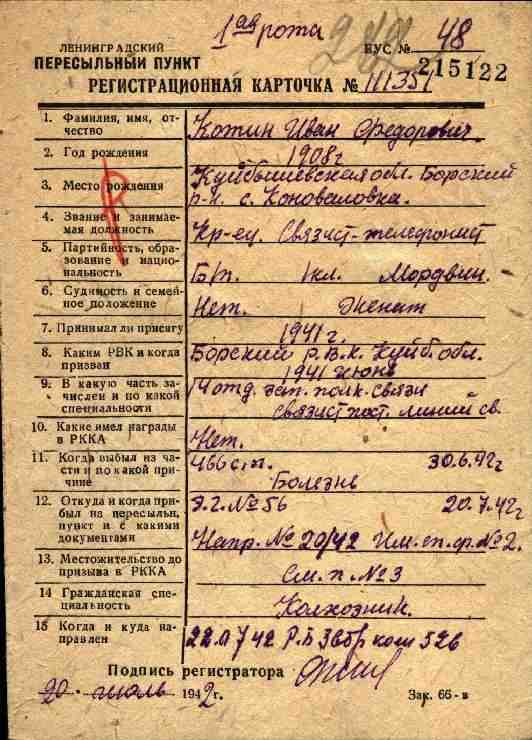 1ая рота
ЛЕНИНГРАДСКИЙ
ВУС № 48
ПЕРЕСЫЛЬНЫЙ ПУНКТ
215122
РЕГИСТРАЦИОННАЯ КАРТОЧКА № 111351
1. Фамилия, имя, от-
чество
Кожин Иван Федорович.
2. Год рождения
1908г
3. Место рождения
Куйбышевская обл. Борский
р-н. с. Коноваловка.
4. Звание и занимае-
мая должность
Кр-ец. Связист-телефонист
5. Партийность, обра-
зование и нацио-
нальность
Б/п. 1кл. Мордвин.
6. Судимость и семей-
ное положение
Нет. Женат
7. Принимал ли присягу
1941 г.
8. Каким РВК и когда
призван
Борский р.в.к. Куйб. обл.
1941 июнь
9. В какую часть за-
числен и по какой
специальности
14 отд. зап. полк. связи
связист пост. линий св.
10. Какие имел награды
в РККА
Нет.
11. Когда выбыл из ча-
сти и по какой при-
чине
466 с.п. 30.6.42г
Болезнь
12. Откуда и когда при-
был на пересыльн.
пункт и с какими
документами
Э.г. № 56 20.7.42г
Напр. № 20/42 Им. сп. ф. № 2.
13. Местожительство до
призыва в РККА
См. п. № 3
14 Гражданская спе-
циальность
Колхозник.
15 Когда и куда на-
правлен
22.07.42
Подпись регистратора
20. июль 1942 г.
Зак. 66-в